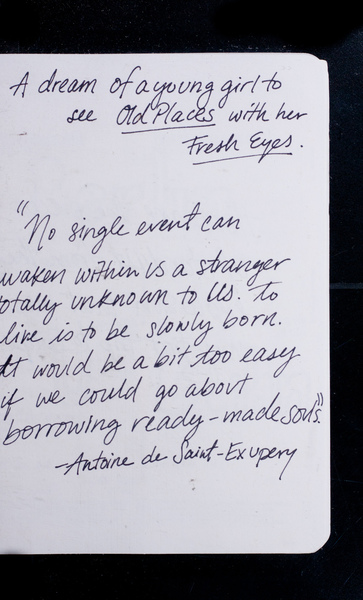 A dream of a young girl to
see Old Places with her
Fresh Eyes.
"No single event can
waken within us a stranger
otally unknown to Us. To
live is to be slowly born.
It would be a bit too easy
if we could go about
borrowing ready-made souls."
-Antoine de Saint-Exupery